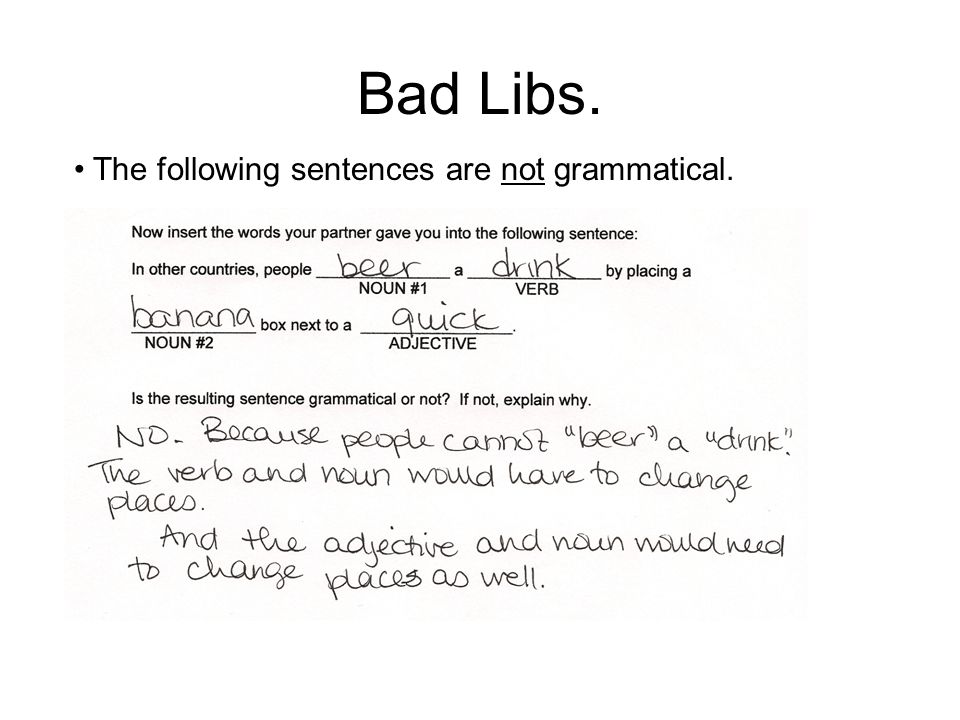 Bad Libs.
• The following sentences are not grammatical.
Now insert the words your partner gave you into the following sentence:
In other countries, people beer a drink by placing a
NOUN #1 VERB
banana box next to a quick.
NOUN #2 ADJECTIVE
Is the resulting sentence grammatical or not? If not, explain why.
NO. Because people cannot "beer" a "drink".
The verb and noun would have to change
places.
And the adjective and noun would need
to change places as well.